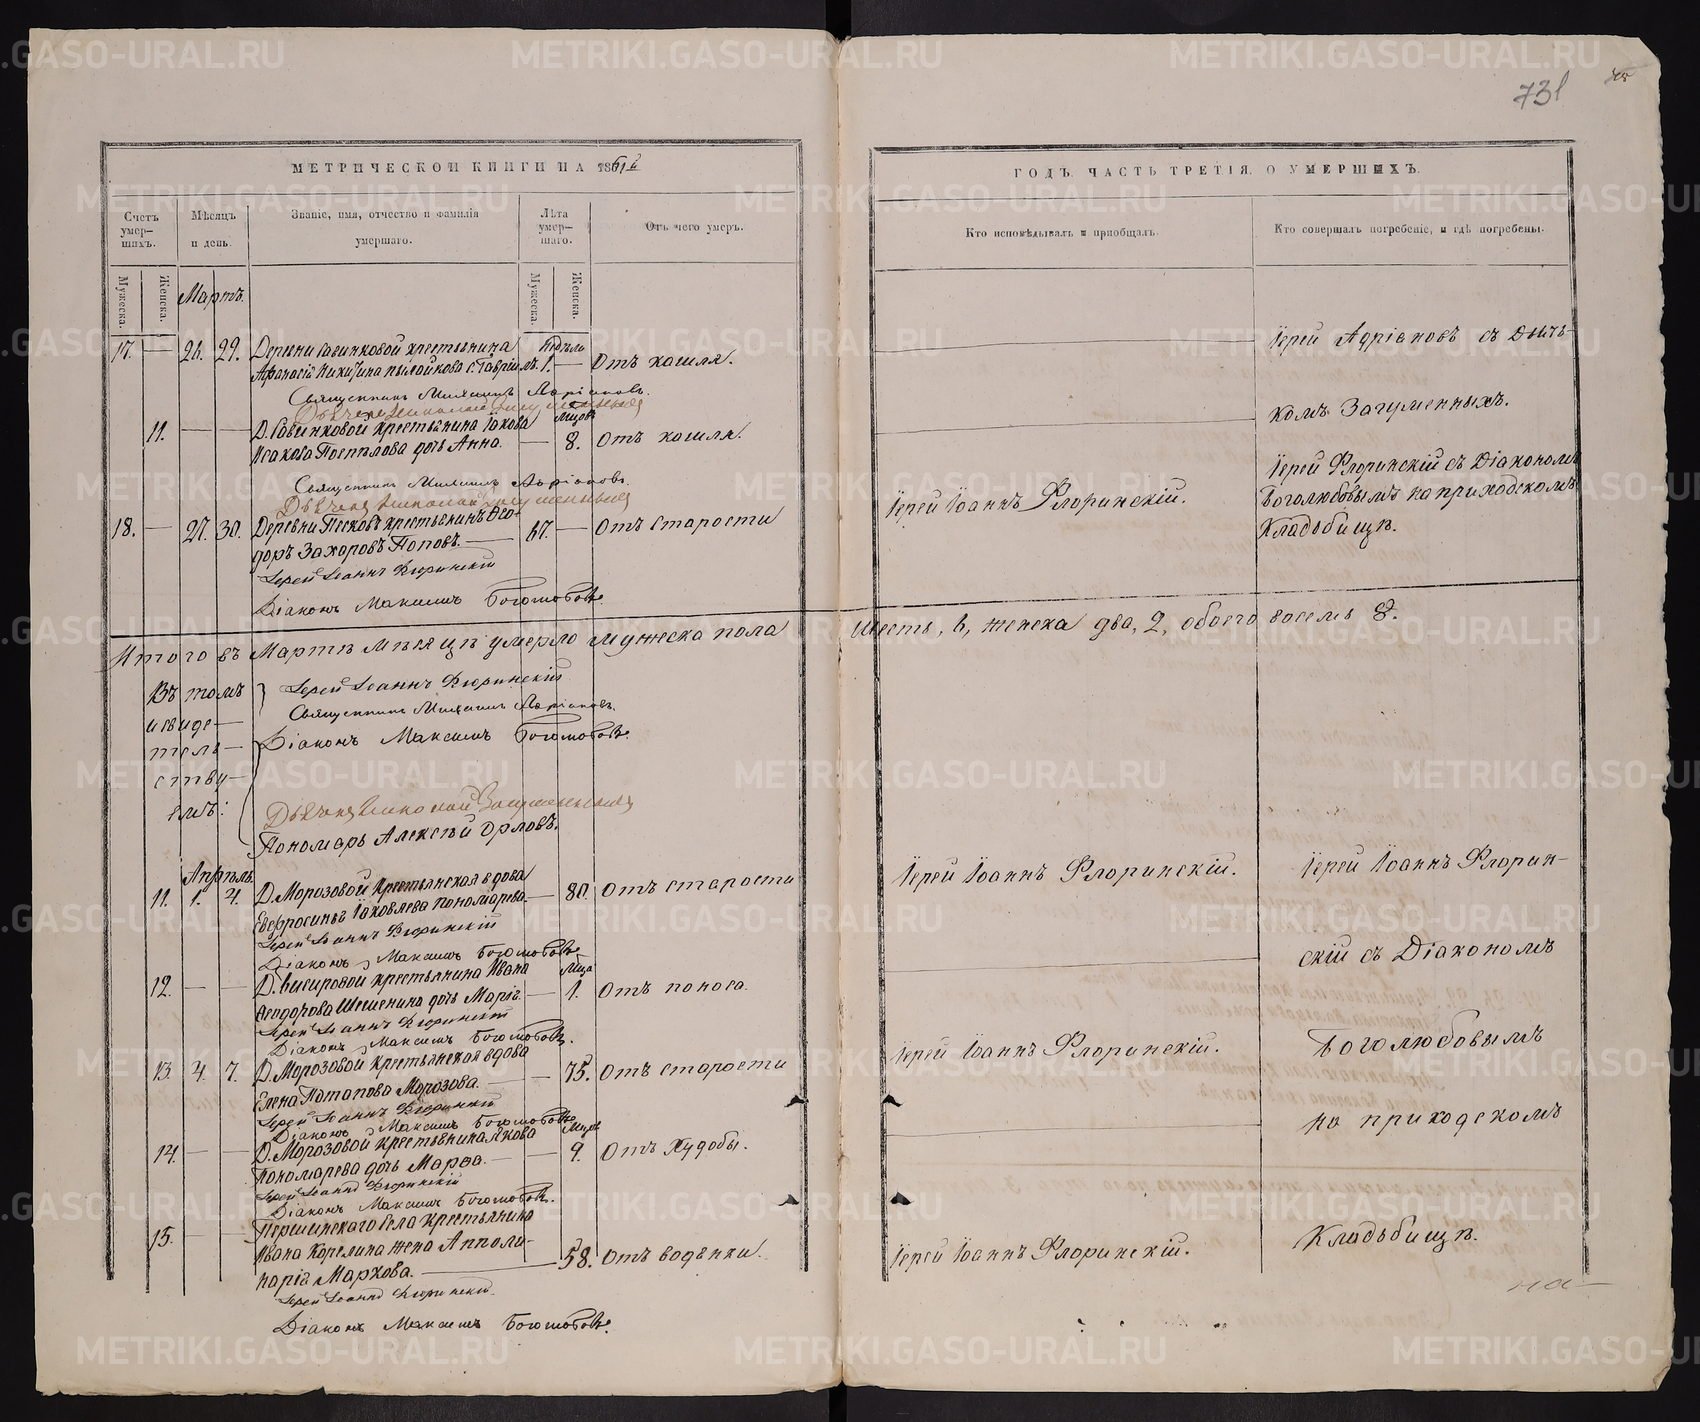 731
МЕТРИЧЕСКОЙ КНИГИ НА 1861й
ГОДЪ. ЧАСТЬ ТРЕТІЯ. О УМЕРШИХЪ.
Счетъ умер-шихъ.
Мѣсяцъ и день.
Званіе, имя, отчество и фамилія умершаго.
Лѣта умер-шаго.
Отъ чего умеръ.
Кто исповѣдывалъ и пріобщалъ.
Кто совершалъ погребеніе, и гдѣ погребены.
Мужеска.
Женска.
Мужеска.
Женска.
Мартъ.
17. — 26. 29. Деревни Савинковой крестьянина недѣли
Афанасія Никитина с. Гавріилъ. 1. — Отъ кашля.
Священникъ Михаилъ Адріановъ.
11. — — Д. Савинковой крестьянина Іакова мѣсяцовъ
Исакова Поспѣлова дочь Анна. — 8. Отъ кашля.
Священникъ Михаилъ Адріановъ.
18. — 27. 30. Деревни Песковъ крестьянинъ Ѳео-
доръ Захаровъ Поповъ. — 67. — Отъ старости
Іерей Іоаннъ Флоринскій
Діаконъ Максимъ Боголюбовъ.
Іерей Адріановъ съ Дьяч-
комъ Загуменныхъ.
Іерей Іоаннъ Флоринскій.
Іерей Флоринскій съ Діакономъ
Боголюбовымъ на приходскомъ
Кладбищѣ.
Итого въ Мартѣ мѣсяцѣ умерло мужеска пола шесть, 6, женска два, 2, обоего восемь 8.
Въ томъ
свиде-
тель-
ству-
емъ:
Іерей Іоаннъ Флоринскій
Священникъ Михаилъ Адріановъ.
Діаконъ Максимъ Боголюбовъ.
Дьячекъ Николай Загуменныхъ
Пономарь Алексѣй Орловъ.
Апрѣль
11. 1. 4. Д. Морозовой крестьянская вдова
Евфросинья Іаковлева Пономарева. — 80. Отъ старости
Іерей Іоаннъ Флоринскій
Діаконъ Максимъ Боголюбовъ
12. — — крестьянина Ивана мѣсяца
Ѳеодорова дочь Марія. — 1. Отъ поноса.
Іерей Іоаннъ Флоринскій
Діаконъ Максимъ Боголюбовъ.
13. 4. 7. Д. Морозовой крестьянская вдова
Елена Потапова Морозова. — 75. Отъ старости
Іерей Іоаннъ Флоринскій
Діаконъ Максимъ Боголюбовъ
14. — — Д. Морозовой крестьянина Якова мѣсяцовъ
Пономарева дочь Марѳа. — 9. Отъ Худобы.
Іерей Іоаннъ Флоринскій
Діаконъ Максимъ Боголюбовъ.
15. — — Першинскаго села крестьянина
Ивана Карелина жена Апполи-
нарія Маркова. — 58. Отъ водянки.
Іерей Іоаннъ Флоринскій.
Діаконъ Максимъ Боголюбовъ.
Іерей Іоаннъ Флоринскій.
Іерей Іоаннъ Флоринскій.
Іерей Іоаннъ Флоринскій.
Іерей Іоаннъ Флорин-
скій съ Діакономъ
Боголюбовымъ
на приходскомъ
Кладбищѣ.
на
METRIKI.GASO-URAL.RU